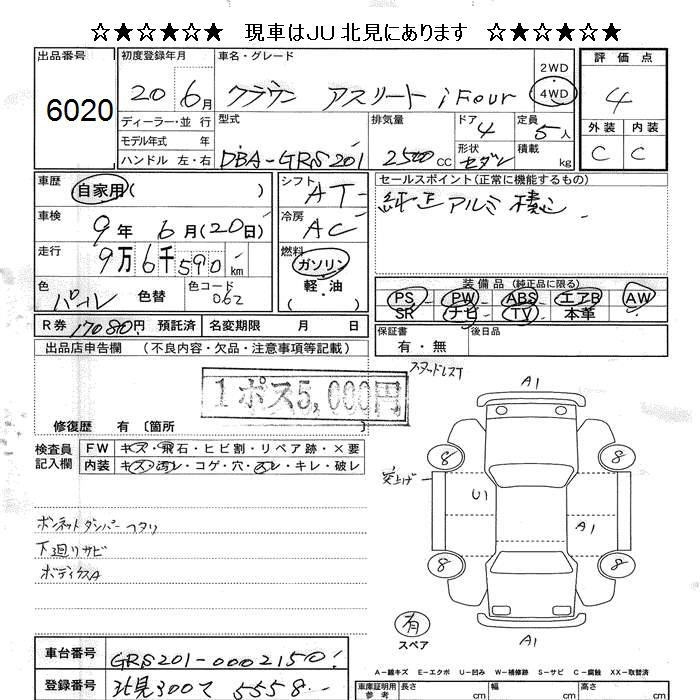 ☆★☆★☆★ 現車はJU北見にあります ☆★☆★☆★
出品番号 6020
初度登録年月 20 6月
車名・グレード クラウン アスリート i Four
2WD
4WD
評価点 4
外装 内装
C C
ディーラー・並行
モデル年式 年
ハンドル 左・右
型式 DBA-GRS201
排気量 2500 CC
ドア 4
形状 セダン
定員 5人
積載 kg
車歴 自家用( )
車検 9年 6月(20日)
走行 9万6千590 km
色 パール 色替
色コード 062
シフト AT
冷房 AC
燃料 ガソリン
軽・油
( )
セールスポイント(正常に機能するもの)
純正アルミ積込
装備品(純正品に限る)
PS PW ABS エアB AW
SR ナビ TV 本革
R券 17080円 預託済 名変期限 月 日
保証書 有・無
後日品
出品店申告欄 (不良内容・欠品・注意事項等記載)
1ポス5,000円
修復歴 有 〔箇所 〕
検査員記入欄
FW キズ・飛石・ヒビ割・リペア跡・×要
内装 キズ・汚レ・コゲ・穴・スレ・キレ・破レ
ボンネットダンパー ヘタリ
下廻りサビ
ボディクスA
スタッドレスT
A1
8 8
突上げ
U1
A1
8 8
有
スペア
A1
A−線キズ E−エクボ U−凹み W−補修跡 S−サビ C−腐食 XX−取替済
車台番号 GRS201-0002150
登録番号 北見300 5558
車庫証明用参考 長さ cm 幅 cm 高さ cm